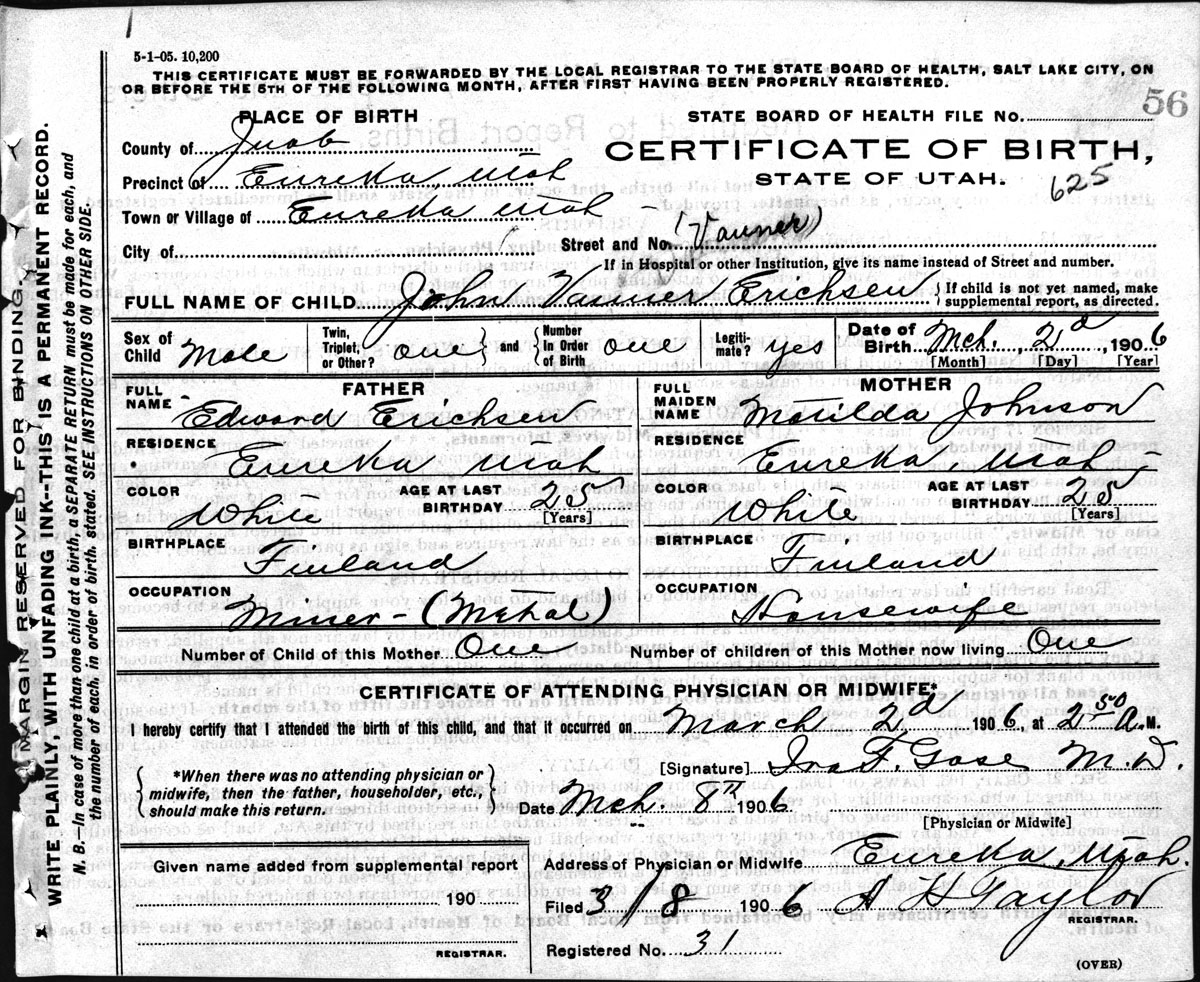 5-1-05. 10,200
THIS CERTIFICATE MUST BE FORWARDED BY THE LOCAL REGISTRAR TO THE STATE BOARD OF HEALTH, SALT LAKE CITY, ON
OR BEFORE THE 5TH OF THE FOLLOWING MONTH, AFTER FIRST HAVING BEEN PROPERLY REGISTERED.
56
PLACE OF BIRTH
STATE BOARD OF HEALTH FILE NO.
County of Juab
CERTIFICATE OF BIRTH,
Precinct of Eureka Utah
STATE OF UTAH. 625
Town or Village of Eureka Utah -
City of Street and No. (Vanner)
If in Hospital or other Institution, give its name instead of Street and number.
FULL NAME OF CHILD John Vanner Erichsen { If child is not yet named, make supplemental report, as directed.
Sex of Child Male Twin, Triplet, or Other? one } and { Number In Order of Birth one Legitimate? yes Date of Birth Mch. 2d, 1906
[Month] [Day] [Year]
FATHER
FULL NAME Edward Erichsen
RESIDENCE Eureka Utah
COLOR White AGE AT LAST BIRTHDAY 25
[Years]
BIRTHPLACE Finland
OCCUPATION Miner - (Metal)
MOTHER
FULL MAIDEN NAME Matilda Johnson
RESIDENCE Eureka Utah -
COLOR White AGE AT LAST BIRTHDAY 25
[Years]
BIRTHPLACE Finland
OCCUPATION Housewife
Number of Child of this Mother One Number of children of this Mother now living One
CERTIFICATE OF ATTENDING PHYSICIAN OR MIDWIFE*
I hereby certify that I attended the birth of this child, and that it occurred on March 2d, 1906, at 2 50 A. M.
{ *When there was no attending physician or midwife, then the father, householder, etc., should make this return. }
[Signature] Ira F. Gose M.D.
Date Mch. 8th 1906
[Physician or Midwife]
Given name added from supplemental report
190
REGISTRAR.
Address of Physician or Midwife Eureka, Utah.
Filed 3/8 1906 A L Taylor
REGISTRAR.
Registered No. 31
(OVER)
MARGIN RESERVED FOR BINDING.
WRITE PLAINLY, WITH UNFADING INK--THIS IS A PERMANENT RECORD.
N. B.—In case of more than one child at a birth, a SEPARATE RETURN must be made for each, and
the number of each, in order of birth, stated. SEE INSTRUCTIONS ON OTHER SIDE.